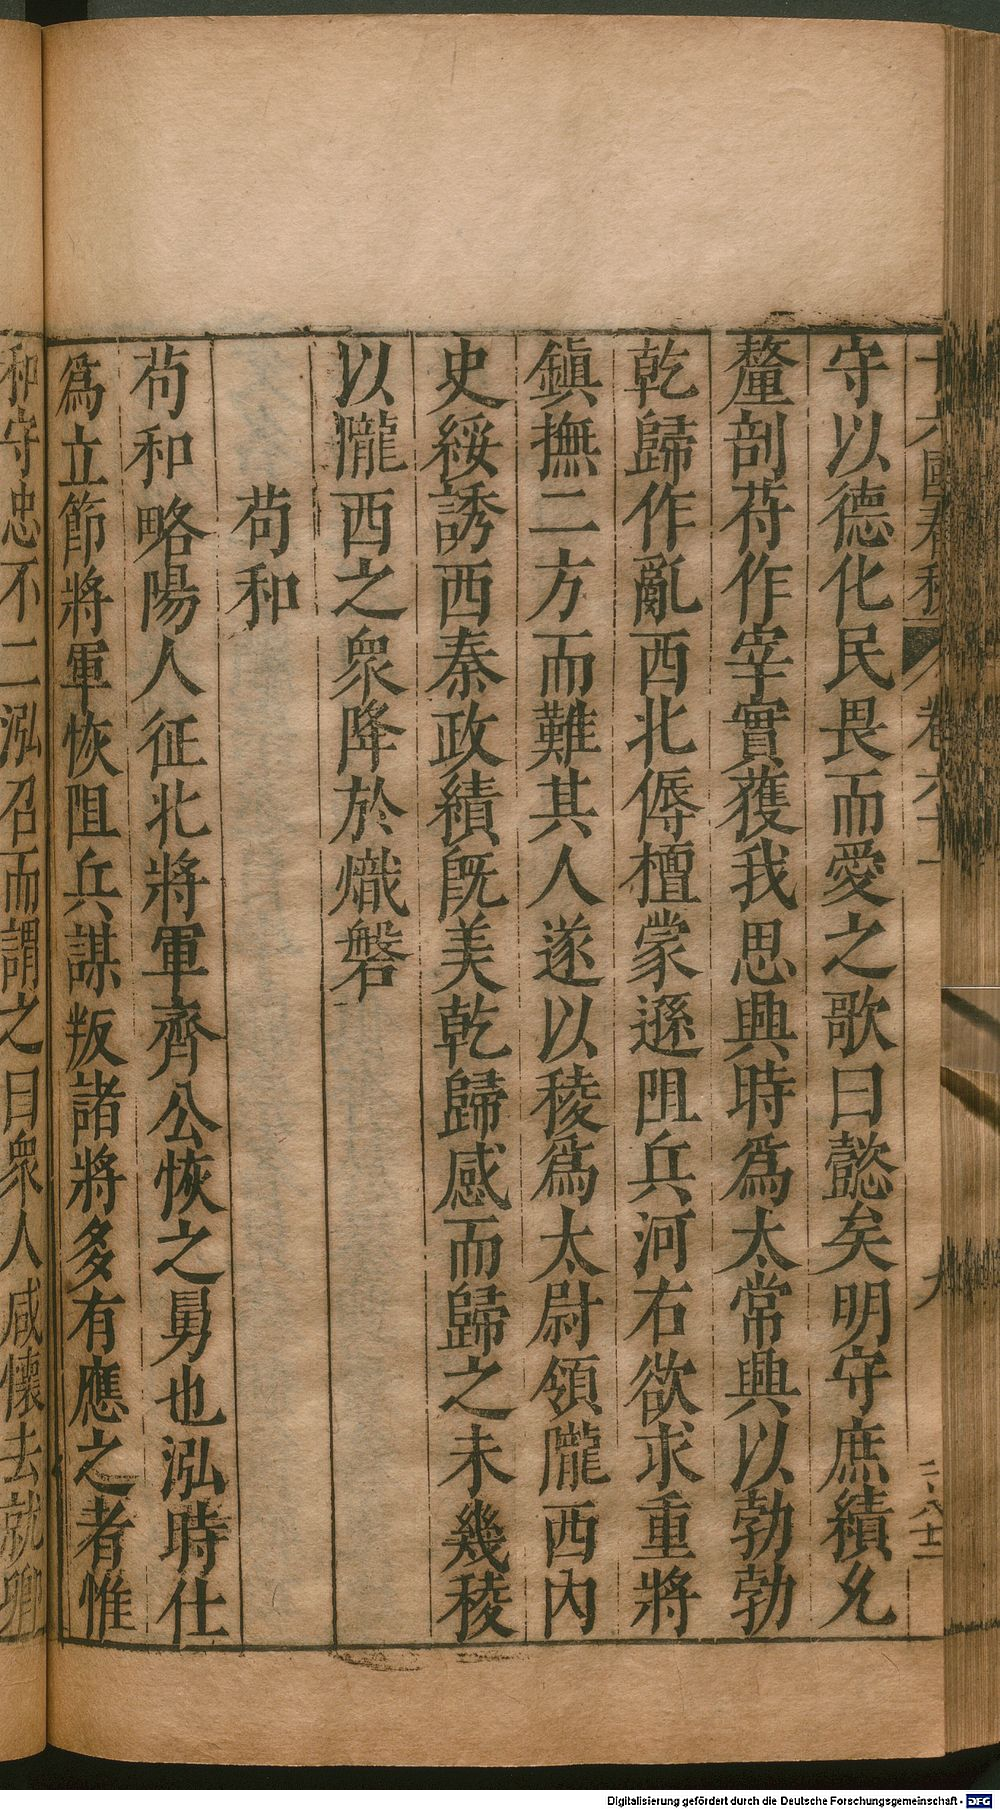 十六國春秋 卷六十一 九
守以德化民畏而愛之歌曰懿矣明守庶績允
釐剖苻作宰實獲我思興時爲太常興以勃勃
乾歸作亂西北傉檀蒙遜阻兵河右欲求重將
鎮撫二方而難其人遂以稜爲太尉領隴西內
史綏誘西秦政績旣美乾歸感而歸之未幾稜
以隴西之衆降於熾磐
苟和
苟和略陽人征北將軍齊公恢之舅也泓時仕
爲立節將軍恢阻兵謀叛諸將多有應之者惟
和守忠不二泓召而謂之曰衆人咸懷去就卿
Digitalisierung gefördert durch die Deutsche Forschungsgemeinschaft - DFG